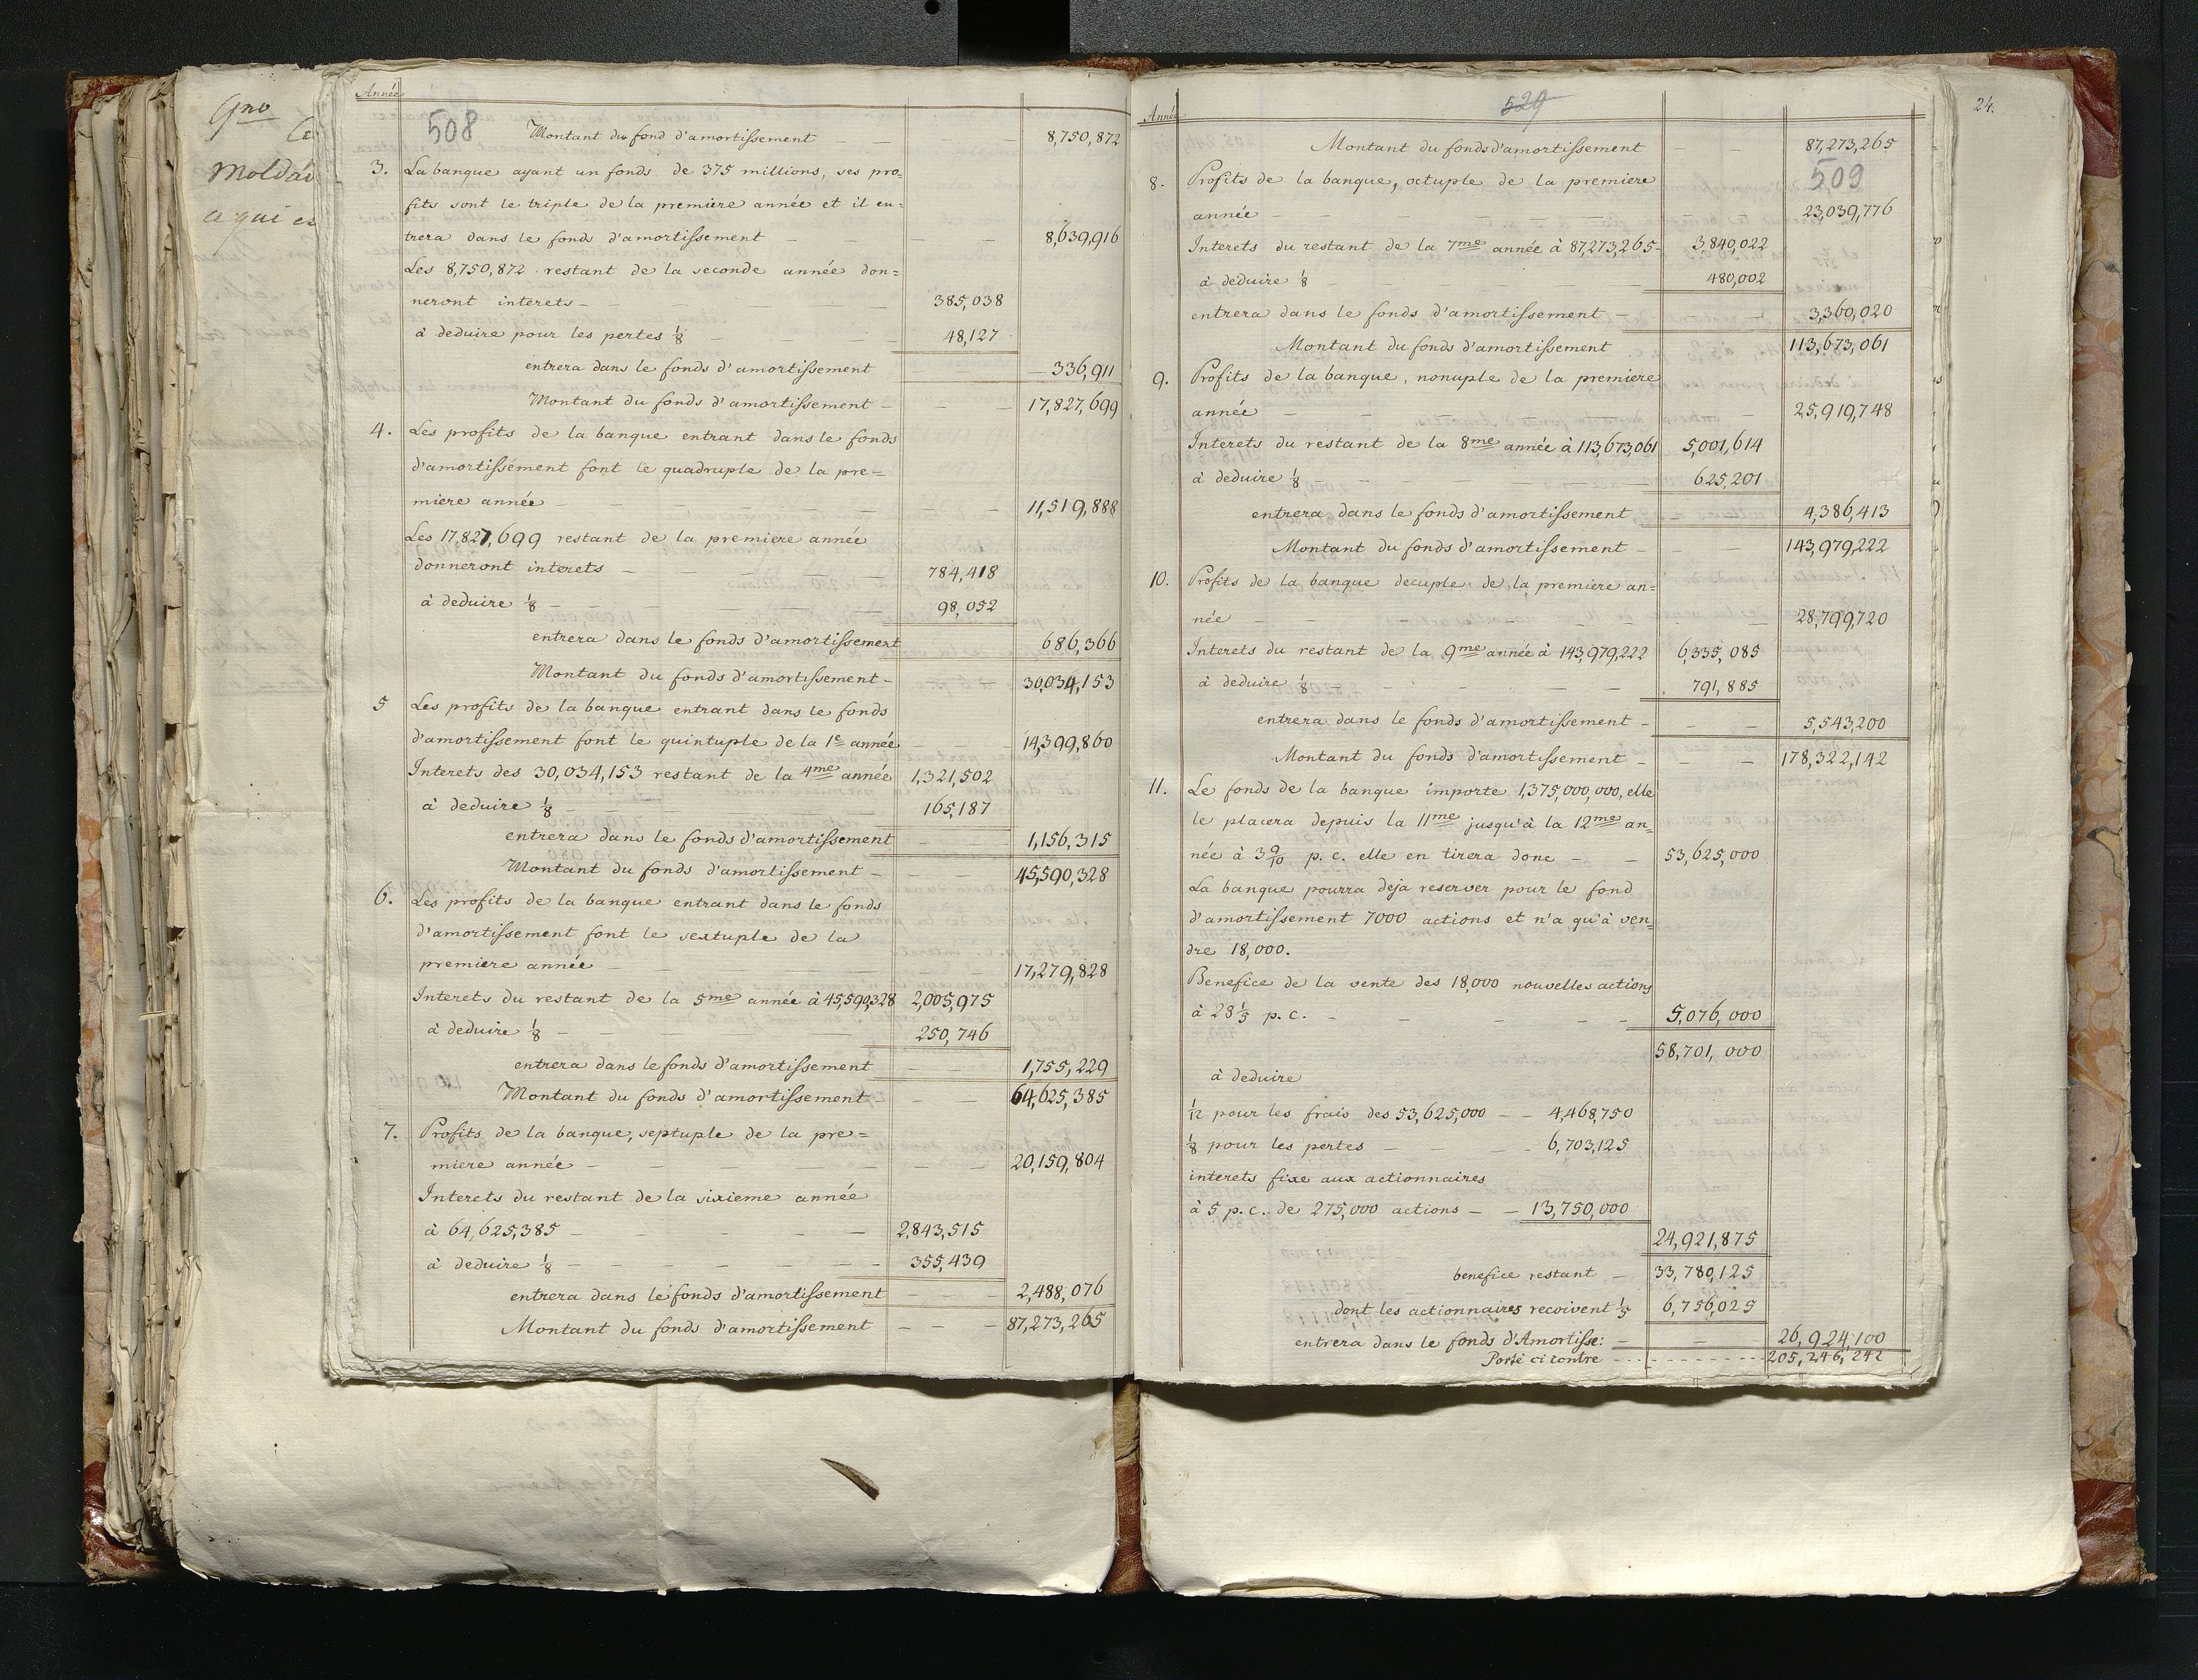 Gno
Ce
Moldav
a qui es
Année
508
Montant du fond d'amortissement — — — 8,750,872
3. La banque ayant un fonds de 375 millions, ses pro=
fits sont le triple de la premiere année et il en=
trera dans le fonds d'amortissement — — — 8,639,916
Les 8,750,872 restant de la seconde année don=
neront interets — — — — 385,038
à deduire pour les pertes 1/8 — — — 48,127
entrera dans le fonds d'amortissement — 336,911
Montant du fonds d'amortissement — — — 17,827,699
4. Les profits de la banque entrant dans le fonds
d'amortissement font le quadruple de la pre=
miere année — — — — — — — 11,519,888
Les 17,827,699 restant de la premiere année
donneront interets — — — — 784,418
à deduire 1/8 — — — — — 98,052
entrera dans le fonds d'amortissement 686,366
Montant du fonds d'amortissement — 30,034,153
5 Les profits de la banque entrant dans le fonds
d'amortissement font le quintuple de la 1e année — — 14,399,860
Interets des 30,034,153 restant de la 4me année 1,321,502
à deduire 1/8 — — — 165,187
entrera dans le fonds d'amortissement — — 1,156,315
Montant du fonds d'amortissement — — — 45,590,328
6. Les profits de la banque entrant dans le fonds
d'amortissement font le sextuple de la
premiere année — — — — — 17,279,828
Interets du restant de la 5me année à 45,590,328 2,005,975
à deduire 1/8 — — — 250,746
entrera dans le fonds d'amortissement — — 1,755,229
Montant du fonds d'amortissement — — 64,625,385
7. Profits de la banque, septuple de la pre=
miere année — — — — — — — 20,159,804
Interets du restant de la sixieme année
à 64,625,385 — — — — — 2,843,515
à deduire 1/8 — — — — — — 355,439
entrera dans le fonds d'amortissement — — — 2,488,076
Montant du fonds d'amortissement — — — 87,273,265
Année
529
24.
Montant du fonds d'amortissement — — 87,273,265
509
8. Profits de la banque, octuple de la premiere
année — — — — — — — 23,039,776
Interets du restant de la 7me année à 87,273,265 — 3,840,022
à deduire 1/8 — — — — — 480,002
entrera dans le fonds d'amortissement — — — 3,360,020
Montant du fonds d'amortissement 113,673,061
9. Profits de la banque, nonuple de la premiere
année — — — — — — 25,919,748
Interets du restant de la 8me année à 113,673,061 5,001,614
à deduire 1/8 — — — — — — 625,201
entrera dans le fonds d'amortissement — — 4,386,413
Montant du fonds d'amortissement — — — 143,979,222
10. Profits de la banque decuple de la premiere an=
née — — — — — — — 28,799,720
Interets du restant de la 9me année à 143,979,222 6,335,085
à deduire 1/8 — — — — — — 791,885
entrera dans le fonds d'amortissement — — — 5,543,200
Montant du fonds d'amortissement — — — 178,322,142
11. Le fonds de la banque importe 1,375,000,000, elle
le placera depuis la 11me jusqu'à la 12me an=
née à 3 9/10 p.c. elle en tirera donc — — 53,625,000
La banque pourra deja reserver pour le fond
d'amortissement 7000 actions et n'a qu'à ven=
dre 18,000.
Benefice de la vente des 18,000 nouvelles actions
à 28 1/5 p.c. — — — — — 5,076,000
58,701,000
à deduire
1/12 pour les frais des 53,625,000 — — 4,468,750
1/8 pour les pertes — — — — 6,703,125
interets fixe aux actionnaires
à 5 p.c. de 275,000 actions — — 13,750,000
24,921,875
benefice restant — 33,780,125
dont les actionnaires recoivent 1/5 6,756,025
entrera dans le fonds d'Amortisse: — — 26,924,100
Porté ci contre - - - - - - - - 205,246,242